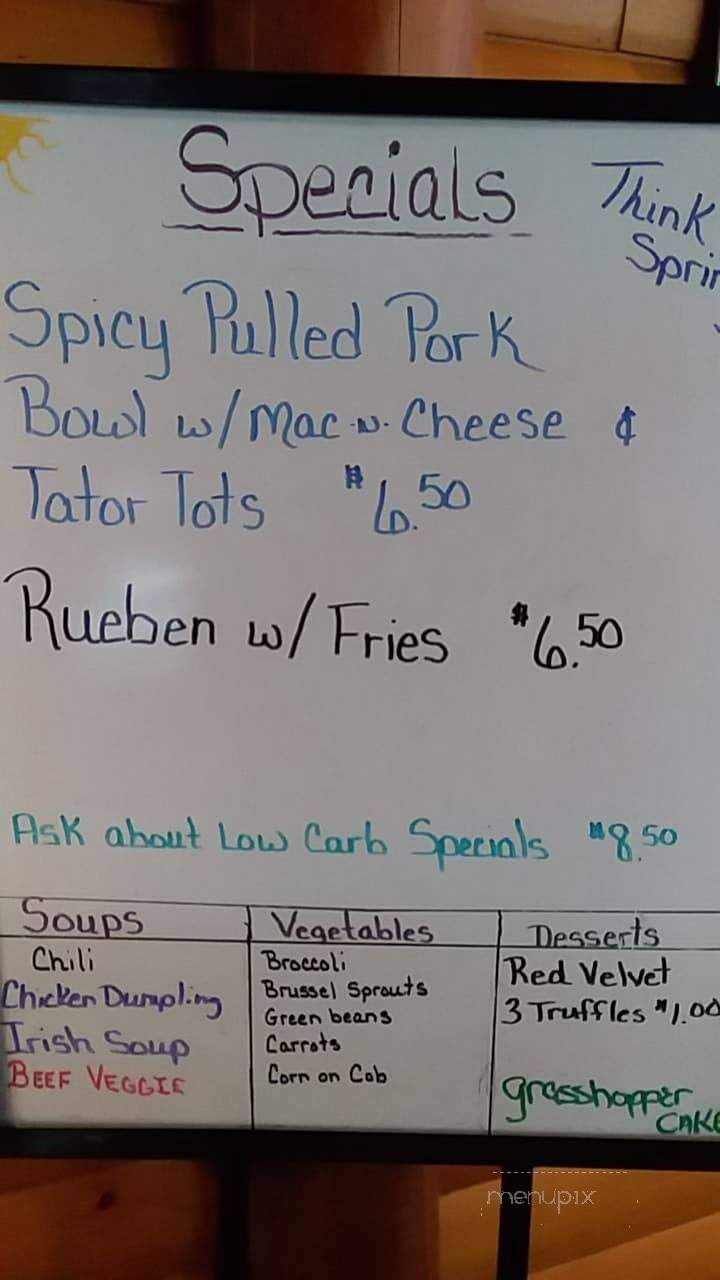 Specials
Think
Sprin
Spicy Pulled Pork
Bowl w/ Mac-n-Cheese &
Tator Tots $6.50
Rueben w/ Fries $6.50
Ask about Low Carb Specials $8.50
Soups
Chili
Chicken Dumpling
Irish Soup
BEEF VEGGIE
Vegetables
Broccoli
Brussel Sprouts
Green beans
Carrots
Corn on Cob
Desserts
Red Velvet
3 Truffles $1.00
grasshopper
CAKE
menupix